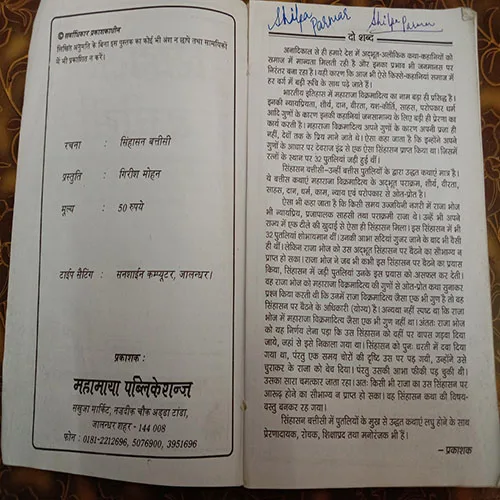 © सर्वाधिकार प्रकाशकाधीन
लिखित अनुमति के बिना इस पुस्तक का कोई भी अंश न छापे तथा सामयिकों
में भी प्रकाशित न करें।
रचना : सिंहासन बत्तीसी
प्रस्तुति : गिरीश मोहन
मूल्य : 50 रुपये
टाईप सैटिंग : सनशाईन कम्प्यूटर, जालन्धर।
प्रकाशक :
महामाया पब्लिकेशन्ज
नसूजा मार्किट, नज़दीक चौक अड्डा टांडा,
जालन्धर शहर - 144 008
फोन : 0181-2212696, 5076900, 3951696
Shilpa Parmar Shilpa Parmar
दो शब्द
अनादिकाल से ही हमारे देश में अद्भूत-अलौकिक कथा-कहानियों को
समाज में मान्यता मिलती रही है और इनका प्रभाव भी जनमानस पर
निरंतर बना रहा है। यही कारण कि आज भी ऐसे किस्से-कहानियां समाज में
हर वर्ग में बड़ी रूचि के साथ पढ़े जाते हैं।
भारतीय इतिहास में महाराजा विक्रमादित्य का नाम बड़ा ही प्रसिद्ध है।
इनकी न्यायप्रियता, शौर्य, दान, वीरता, यश-कीर्ति, साहस, परोपकार धर्म
आदि गुणों के कारण इनकी कहानियां जनसामान्य के लिए बड़ी ही प्रेरणा का
कार्य करती है। महाराजा विक्रमादित्य अपने गुणों के कारण अपनी प्रजा ही
नहीं, देवों तक के प्रिय माने जाते थे। ऐसा कहा जाता है कि इन्होंने अपने
गुणों के आधार पर देवराज इंद्र से एक ऐसा सिंहासन प्राप्त किया था। जिसमें
रत्नों के स्थान पर 32 पुतलियां जड़ी हुई थीं।
सिंहासन बत्तीसी-उन्हीं बत्तीस पुतलियों के द्वारा उद्धृत कथाएं मात्र है।
ये बत्तीस कथाएं महाराजा विक्रमादित्य के अद्भूत पराक्रम, शौर्य, वीरता,
साहस, दान, धर्म, काम, न्याय एवं परोपकार से ओत-प्रोत है।
ऐसा भी कहा जाता है कि किसी समय उज्जयिनी नगरी में राजा भोज
भी न्यायप्रिय, प्रजापालक साहसी तथा पराक्रमी राजा थे। उन्हें भी अपने
राज्य में एक टीले की खुदाई से ऐसा ही सिंहासन मिला। इस सिंहासन में भी
32 पुतलियां शोभायमान थीं। उनकी आभा सदियां गुजर जाने के बाद भी वैसी
ही थीं। लेकिन राजा भोज को उस अद्भूत सिंहासन पर बैठने का सौभाग्य न
प्राप्त हो सका। राजा भोज ने जब भी कभी इस सिंहासन पर बैठने का प्रयास
किया, सिंहासन में जड़ी पुतलियां उनके इस प्रयास को असफल कर देती।
वह राजा भोज को महाराजा विक्रमादित्य की गुणों से ओत-प्रोत कथा सुनाकर
प्रश्न किया करती थी कि उनमें राजा विक्रमादित्य जैसा एक भी गुण है तो वह
सिंहासन पर बैठने के अधिकारी (योग्य) है। अन्यथा नहीं स्पष्ट था कि राजा
भोज में महाराजा विक्रमादित्य जैसा एक भी गुण नहीं था। अंततः राजा भोज
को यह निर्णय लेना पड़ा कि उस सिंहासन को वहीं पर वापस गड़वा दिया
जाये, जहां से इसे निकाला गया था। सिंहासन को पुनः धरती में दबा दिया
गया था, परंतु एक समय चोरों की दृष्टि उस पर पड़ गयी, उन्होंने उसे
चुराकर के राजा को बेच दिया। परंतु उसकी आभा फीकी पड़ चुकी थी।
उसका सारा चमत्कार जाता रहा। अतः किसी भी राजा का उस सिंहासन पर
आरूढ़ होने का सौभाग्य न प्राप्त हो सका। वह सिंहासन कथा की विषय-
वस्तु बनकर रह गया।
सिंहासन बत्तीसी में पुतलियों के मुख से उद्धृत कथाएं लघु होने के साथ
प्रेरणादायक, रोचक, शिक्षाप्रद तथा मनोरंजक भी हैं।
– प्रकाशक